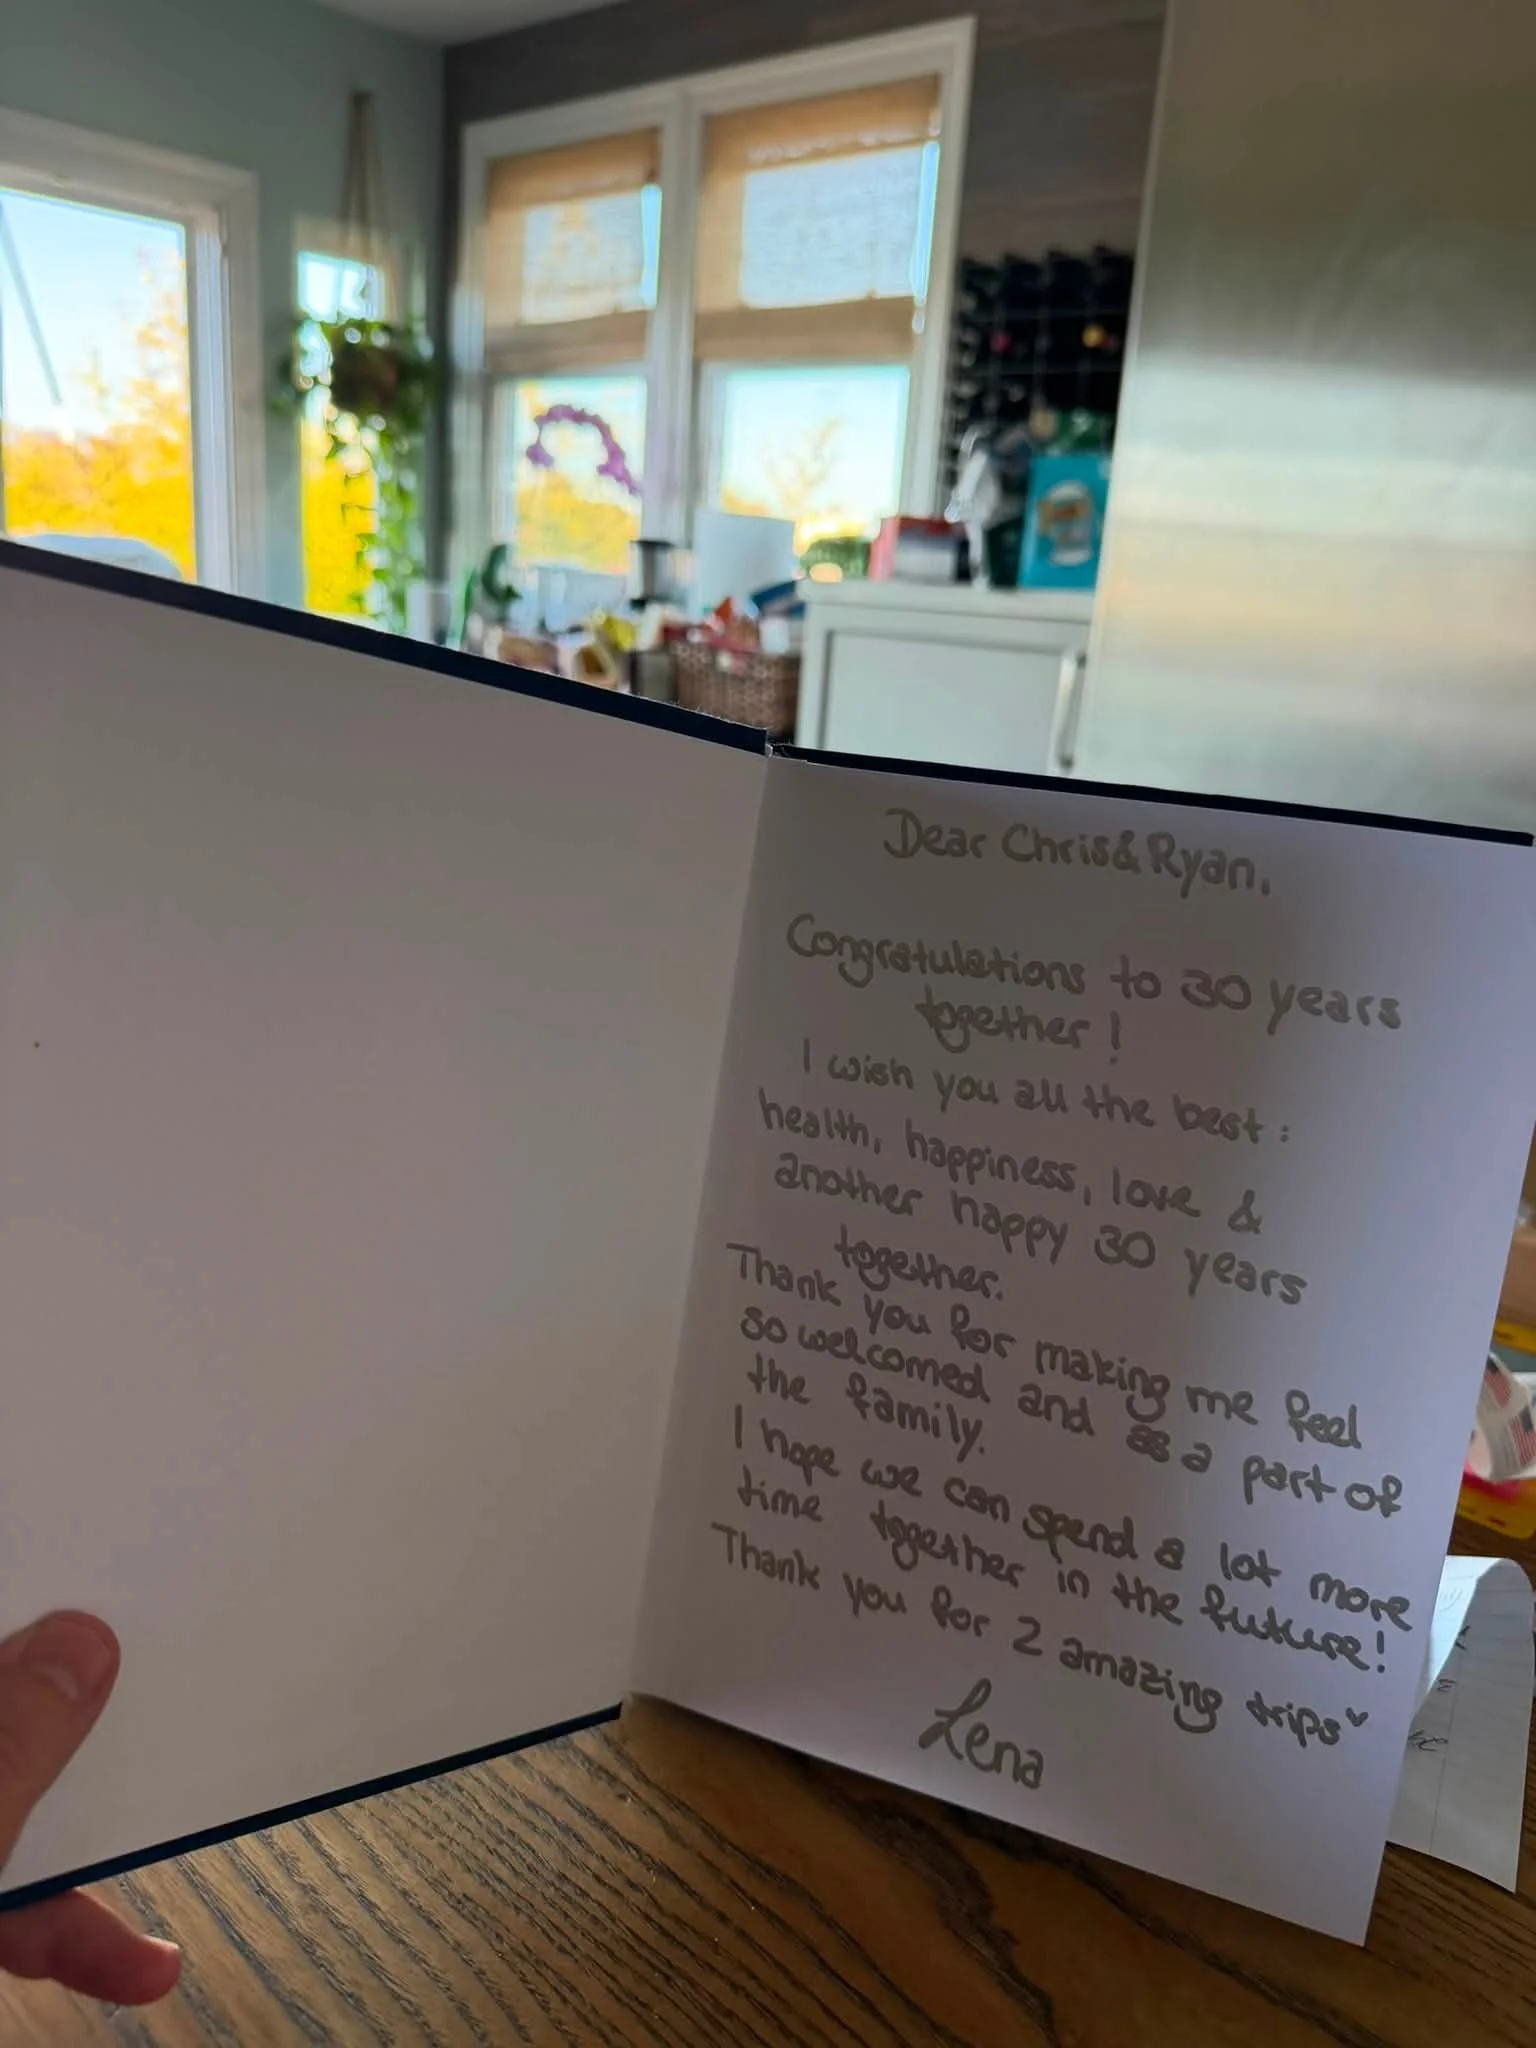 Dear Chris & Ryan,
Congratulations to 30 years
together!
I wish you all the best:
health, happiness, love &
another happy 30 years
together.
Thank you for making me feel
so welcomed and as a part of
the family.
I hope we can spend a lot more
time together in the future!
Thank you for 2 amazing trips
Lena